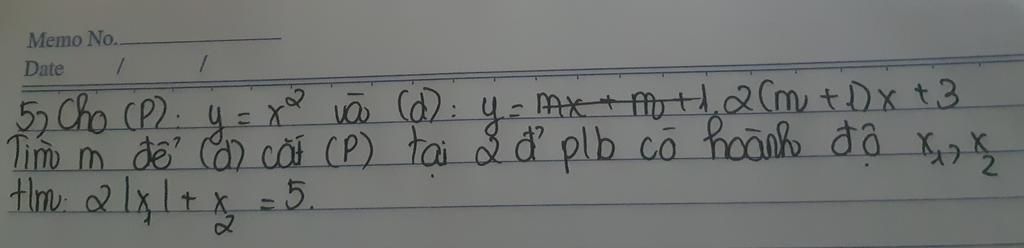 Memo No.
Date / /
5, Cho (P): y = x² và (d): y = mx + m + 1, 2(m + 1)x + 3
Tìm m để (d) cắt (P) tại 2 đ' plb có hoành độ x₁, x₂
tlm: 2|x₁| + x₂ = 5.